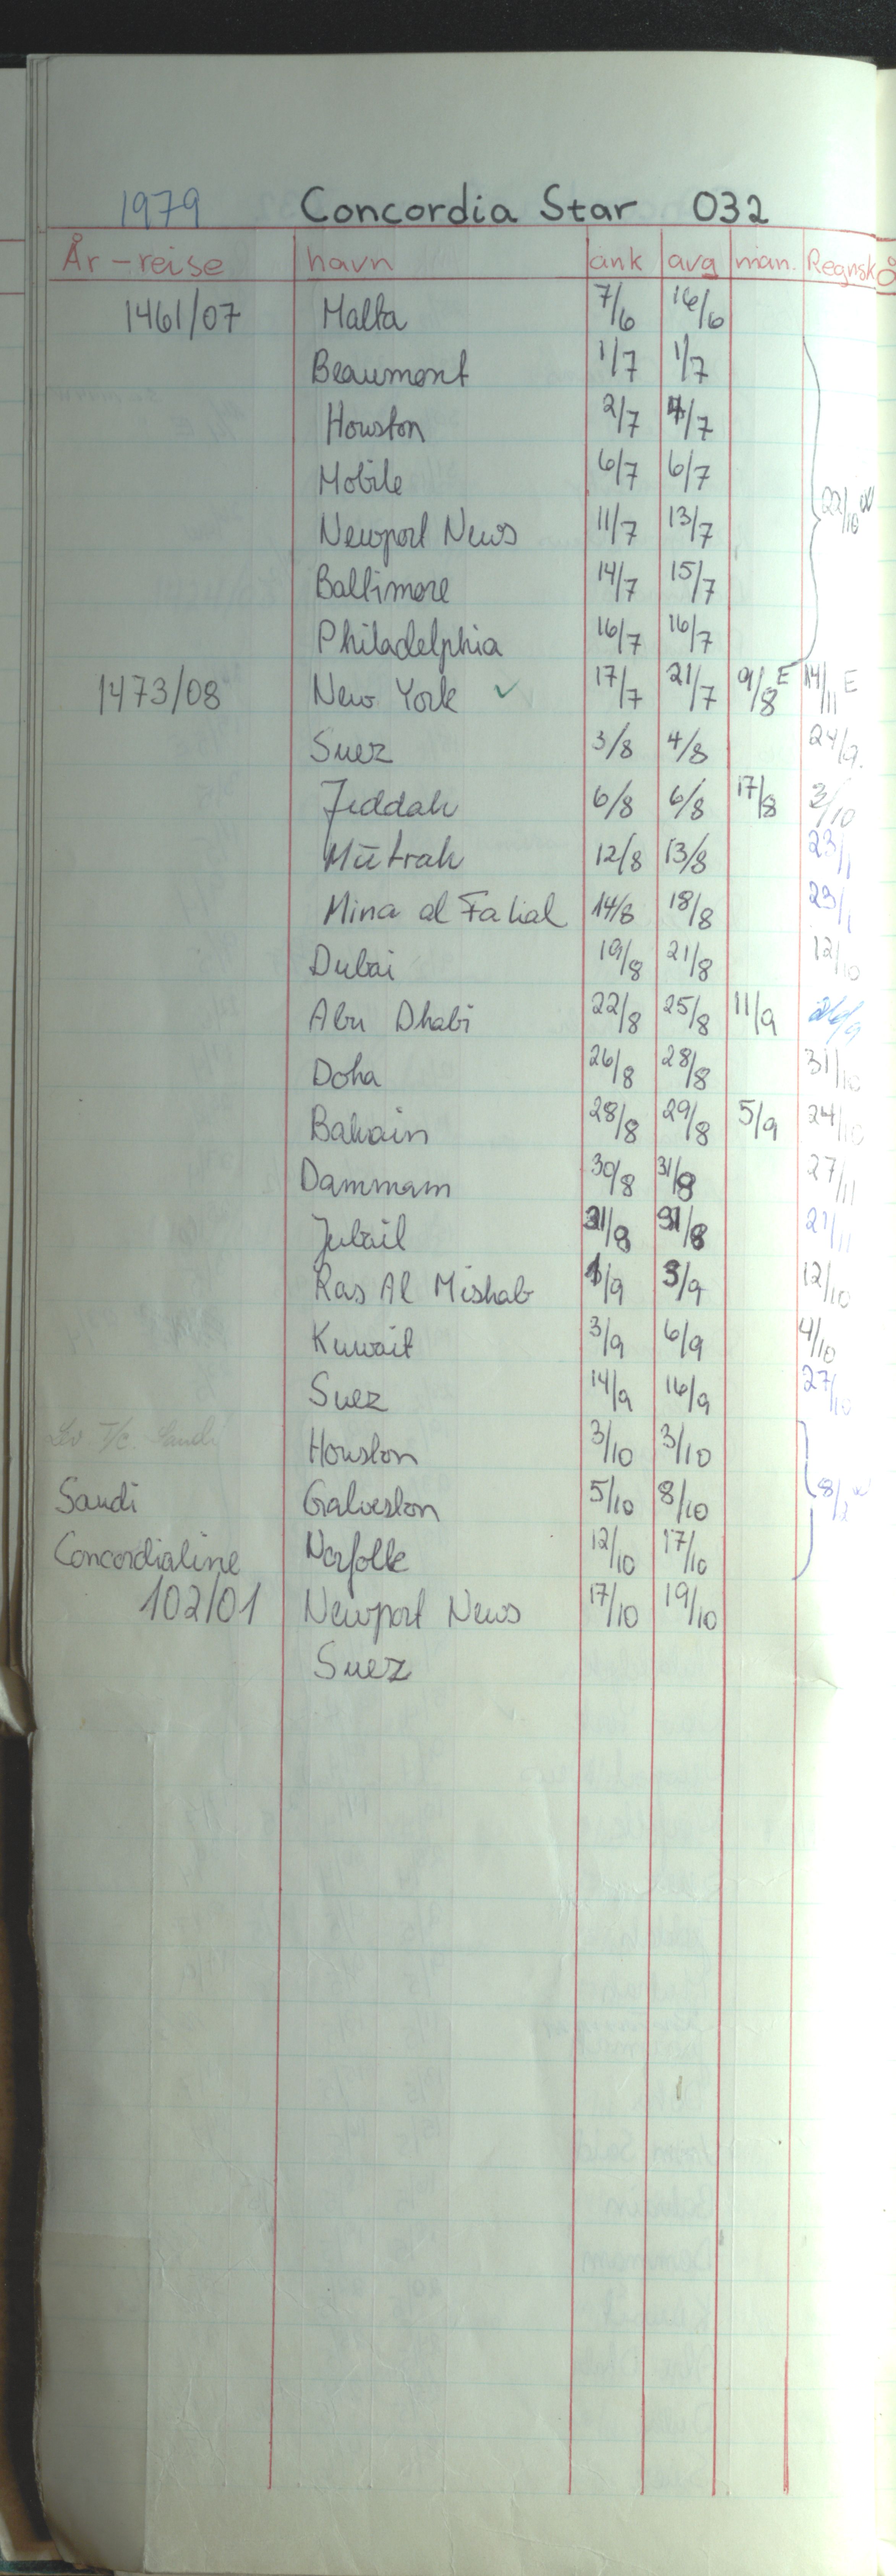 1979 Concordia Star 032
År-reise havn ank avg man. Regnsk
1461/07 Malta 7/6 16/6
Beaumont 1/7 1/7
Houston 2/7 4/7
Mobile 6/7 6/7
Newport News 11/7 13/7 22/10 W
Baltimore 14/7 15/7
Philadelphia 16/7 16/7
1473/08 New York ✓ 17/7 21/7 9/8 E 14/11 E
Suez 3/8 4/8 24/9.
Jeddah 6/8 6/8 17/8 3/10
Mūtrah 12/8 13/8 23/1
Mina al Fahal 14/8 18/8 23/1
Dubai 19/8 21/8 12/10
Abu Dhabi 22/8 25/8 11/9 26/9
Doha 26/8 28/8 31/10
Bahrain 28/8 29/8 5/9 24/10
Dammam 30/8 31/8 27/11
Jubail 31/8 31/8 27/11
Ras Al Mishab 1/9 3/9 12/10
Kuwait 3/9 6/9 4/10
Suez 14/9 16/9 27/10
T/C. Saudi Houston 3/10 3/10
Saudi Galveston 5/10 8/10 8/2 W
Concordialine Norfolk 12/10 17/10
102/01 Newport News 17/10 19/10
Suez